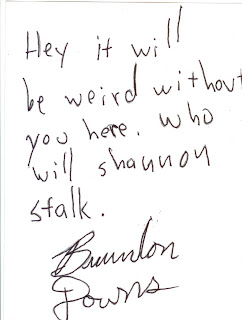 Hey it will
be weird without
you here. who
will shannon
stalk.
Downs